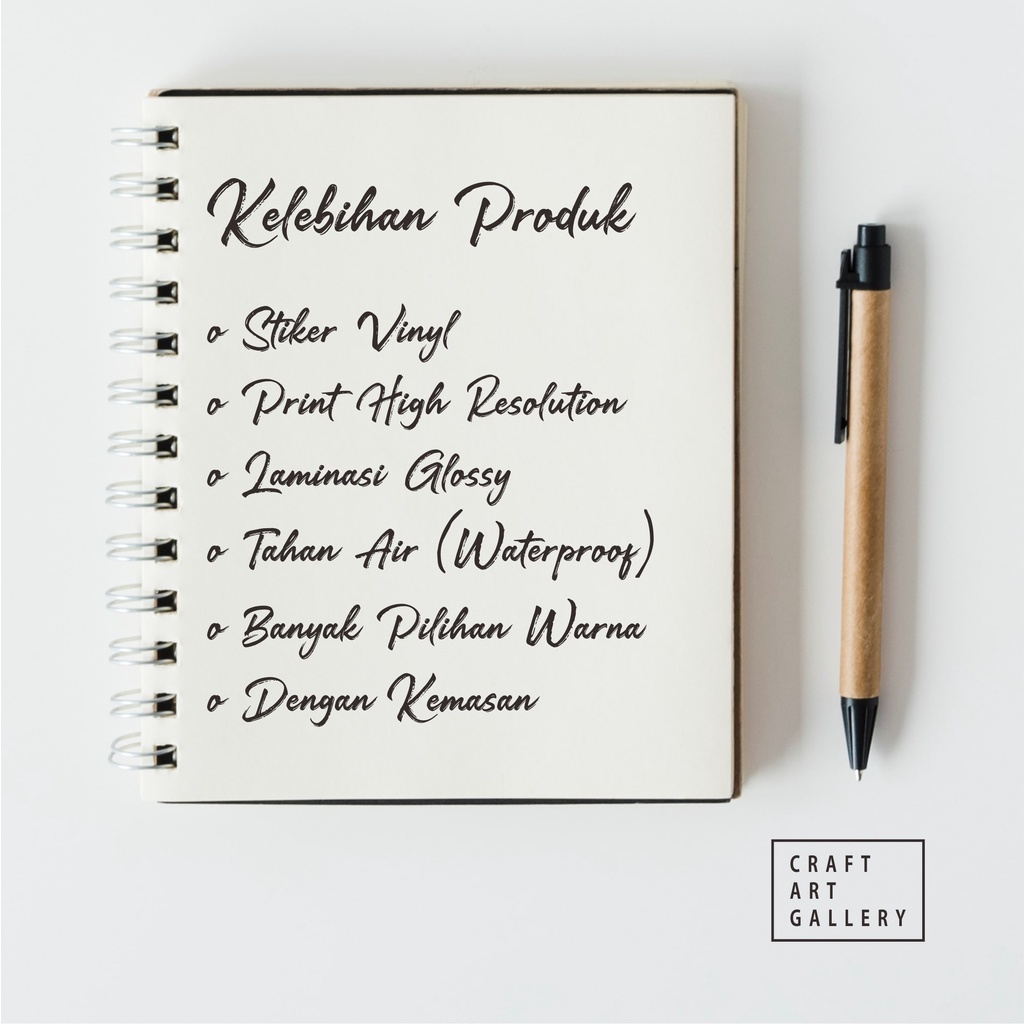 Kelebihan Produk
o Stiker Vinyl
o Print High Resolution
o Laminasi Glossy
o Tahan Air (Waterproof)
o Banyak Pilihan Warna
o Dengan Kemasan
CRAFT
ART
GALLERY